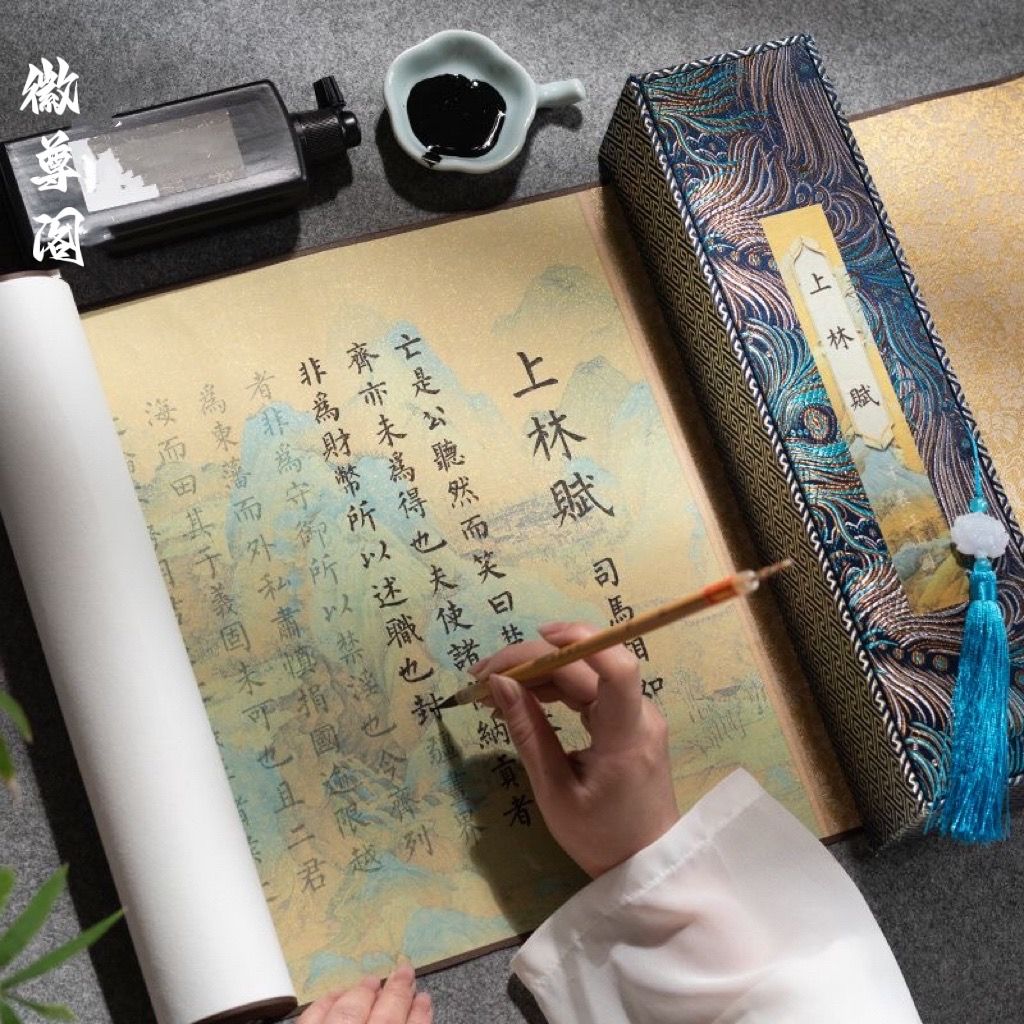 徽尊阁
上林賦
上林賦
司馬如
亡是公聽然而笑曰
齊亦未為得也夫使諸納貢者
非為財幣所以述職也封
者非為守御所以禁淫也今齊列
為東藩而外私肅慎捐國逾限越
海而田其于義固未可也且二君